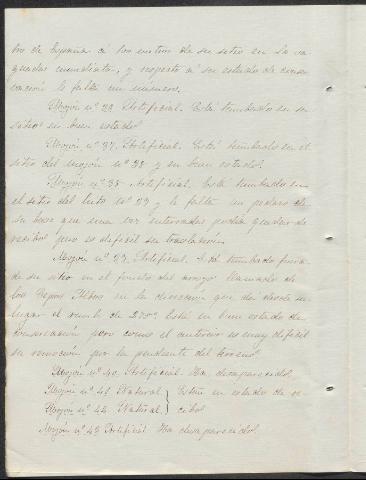 bro de España á los metros de su sitio en la
inmediata, y respecto á su estado de conser
vación le falta un
Mojón nº 36 Artificial. Está tumbado en su
sitio en buen estado.
Mojón nº 37. Artificial. Está tumbado en el
sitio del mojón nº 38 y en buen estado.
Mojón nº 38 Artificial. Está tumbado en
el sitio del hito nº 39 y le falta un pedazo de
su base que una vez enterrado podía quedar de
recibo pero es difícil su traslación.
Mojón nº 39. Artificial. Está tumbado fuera
de su sitio en el fondo del arroyo llamado de
los en la dirección que da desde su
lugar el rumbo de 270º. Está en buen estado de
conservación pero como el anterior es muy difícil
su remoción por la pendiente del terreno.
Mojón nº 40. Artificial. Ha desaparecido.
Mojón nº 41 Natural } Están en estado de re
Mojón nº 42 Natural. } cibo.
Mojón nº 43 Artificial Ha desaparecido.